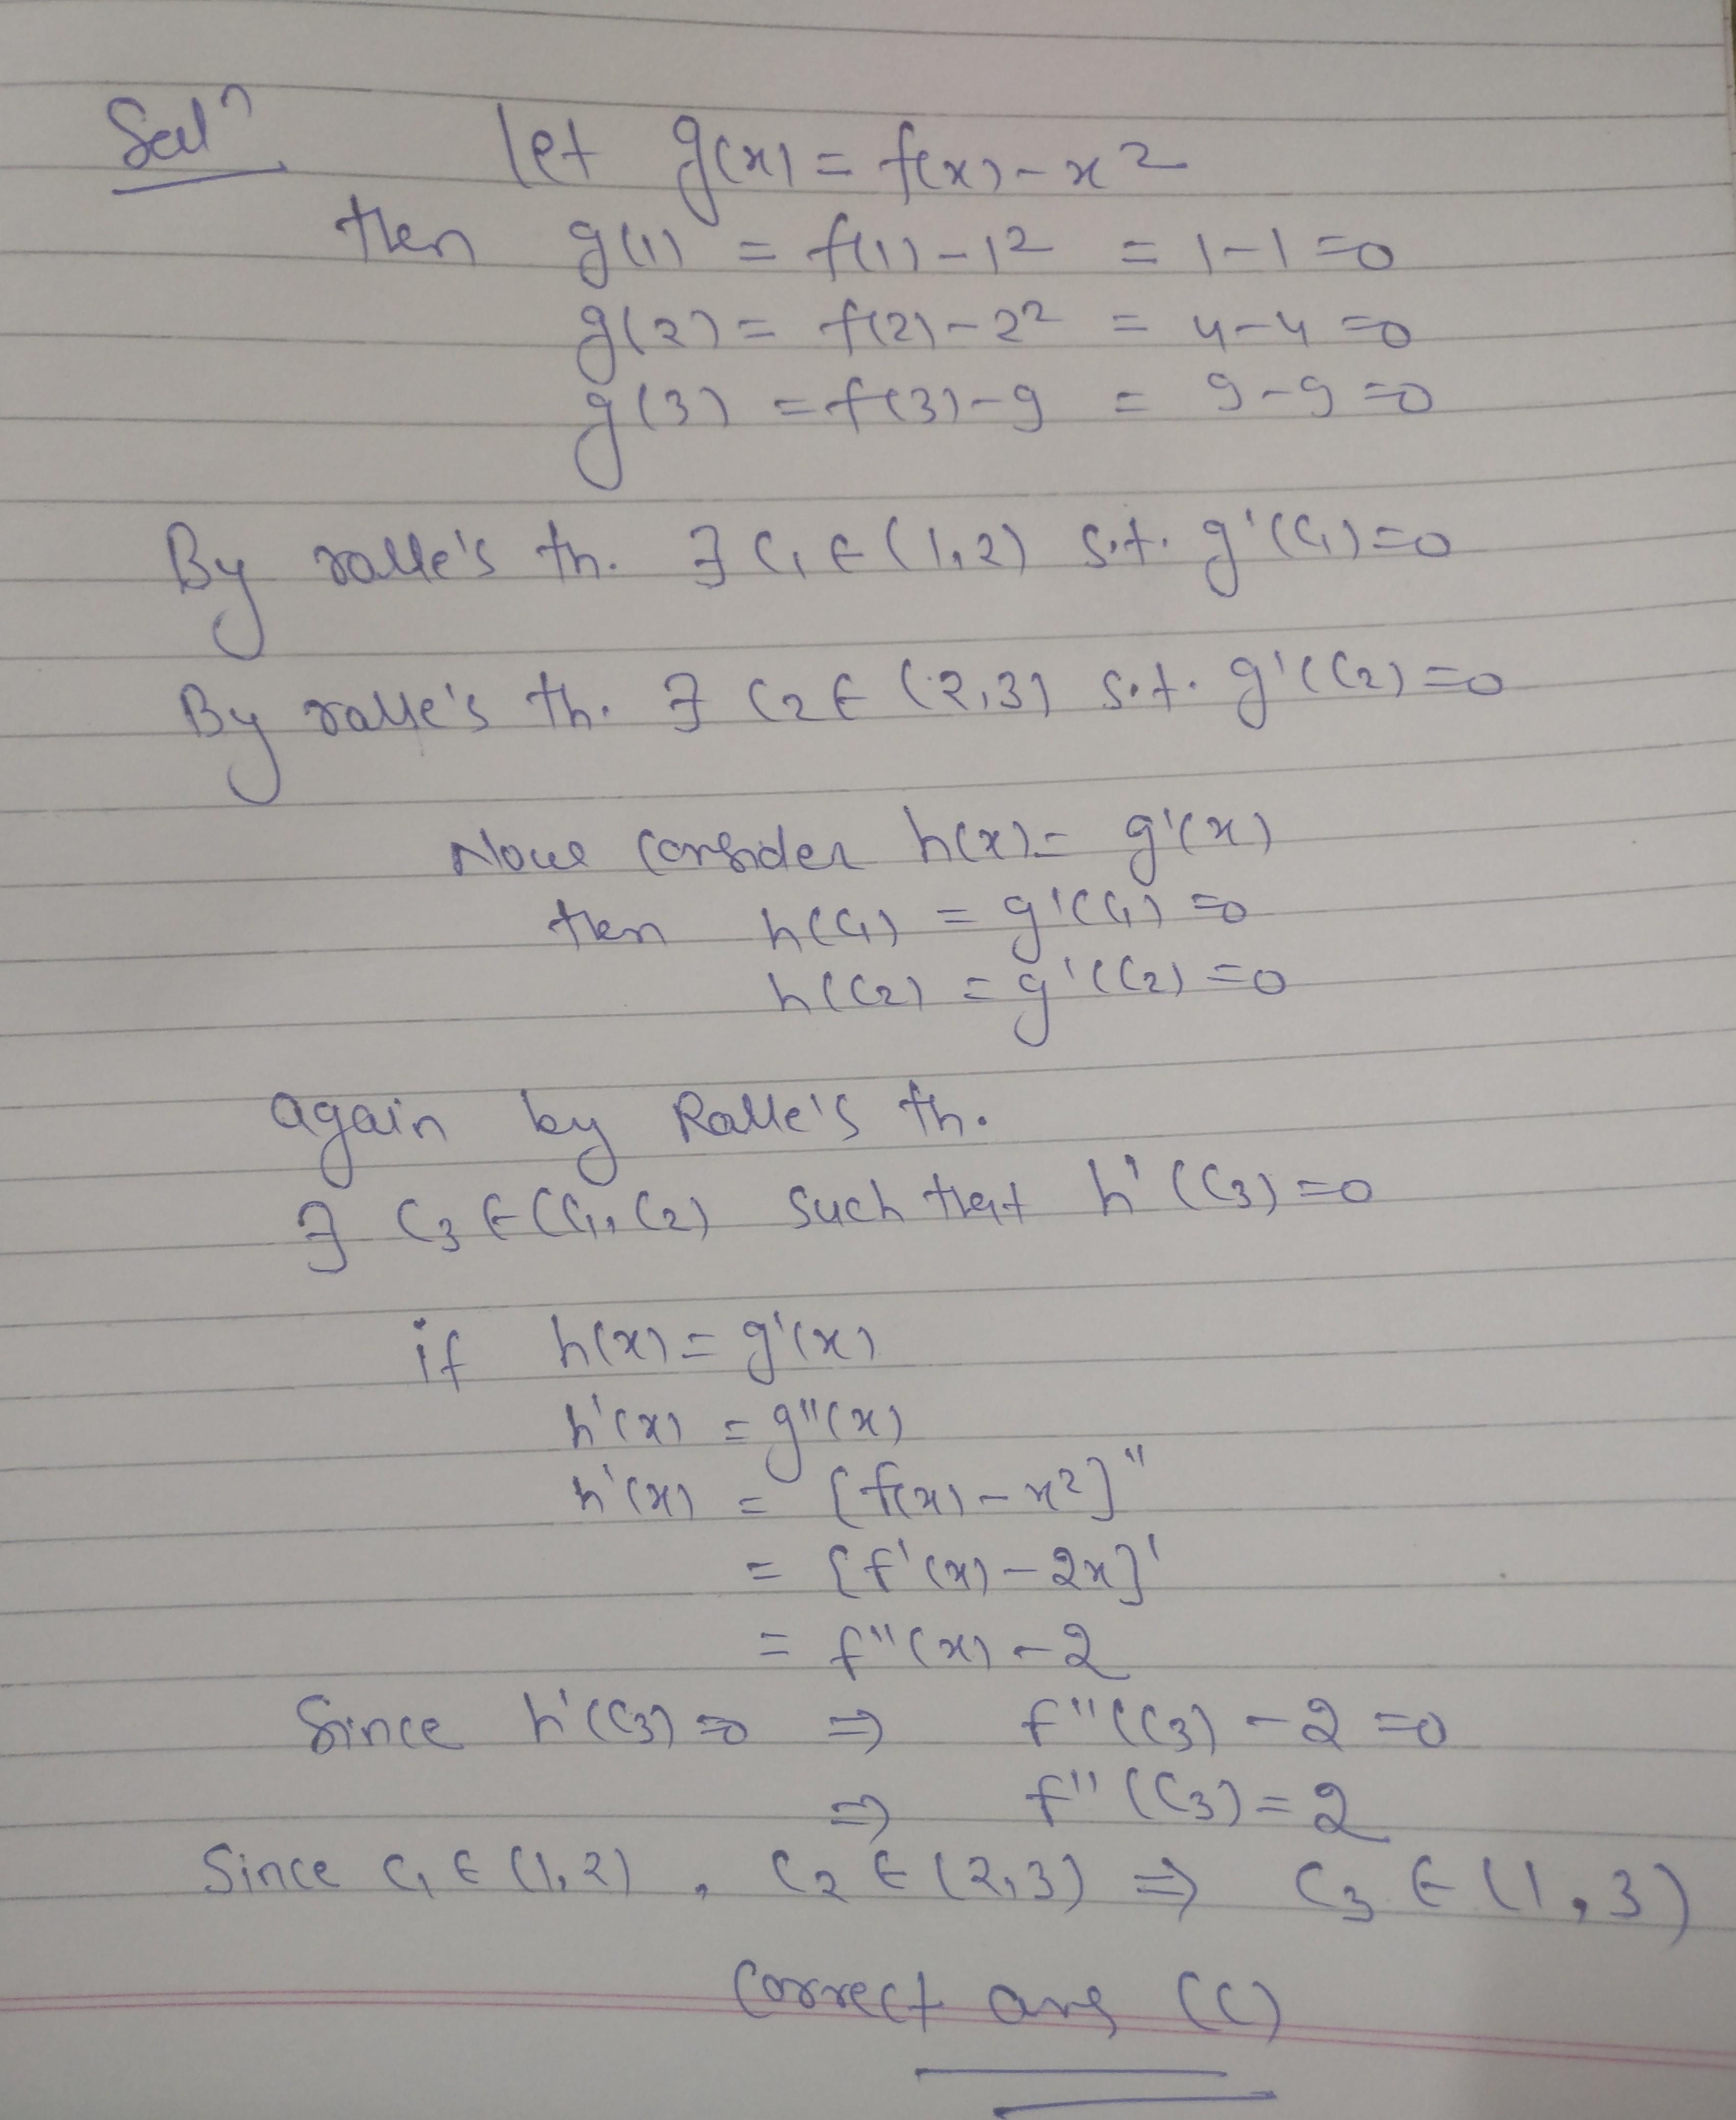 Solⁿ let g(x) = f(x) - x²
then g(1) = f(1) - 1² = 1-1 =0
g(2) = f(2) - 2² = 4-4 =0
g(3) = f(3) - 9 = 9-9 =0
By rolle's th. ∃ C₁ ∈ (1,2) s.t. g'(C₁) =0
By rolle's th. ∃ C₂ ∈ (2,3) s.t. g'(C₂) =0
Now consider h(x) = g'(x)
then h(C₁) = g'(C₁) =0
h(C₂) = g'(C₂) =0
again by Rolle's th.
∃ C₃ ∈ (C₁, C₂) such that h'(C₃) =0
if h(x) = g'(x)
h'(x) = g''(x)
h'(x) = [f(x) - x²]''
= [f'(x) - 2x]'
= f''(x) - 2
Since h'(C₃) =0 ⇒ f''(C₃) - 2 =0
⇒ f''(C₃) = 2
Since C₁ ∈ (1,2) , C₂ ∈ (2,3) ⇒ C₃ ∈ (1,3)
Correct ans (C)